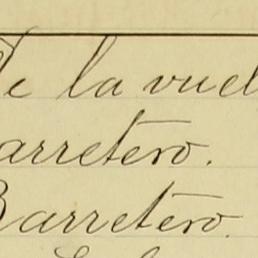 De la vuel
arretero.
Barretero.